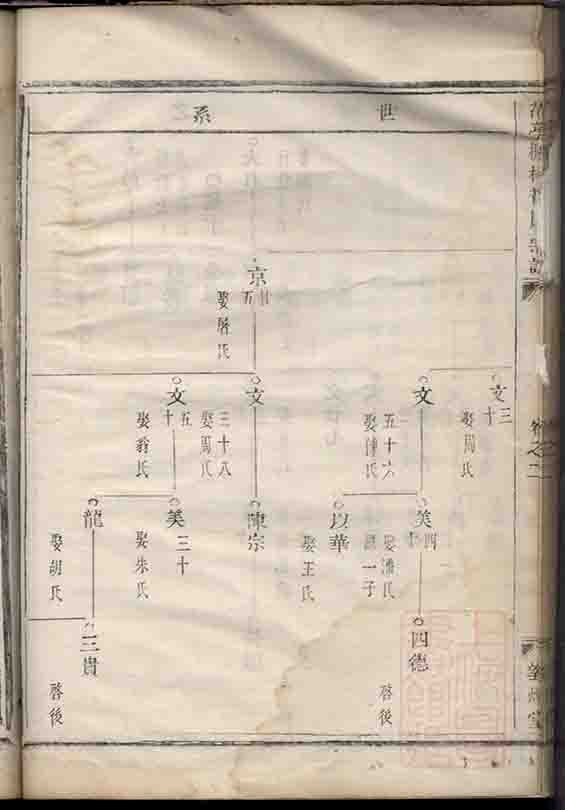 世系
卷之二
京
廿五
娶屠氏
文
三十
娶周氏
文
五十六
娶陳氏
文
三十八
娶馬氏
文
五十
娶翁氏
美
四十
娶潘氏
一子
以華
娶王氏
陳宗
美
三十
娶朱氏
龍
娶胡氏
四德
啓後
三貴
啓後